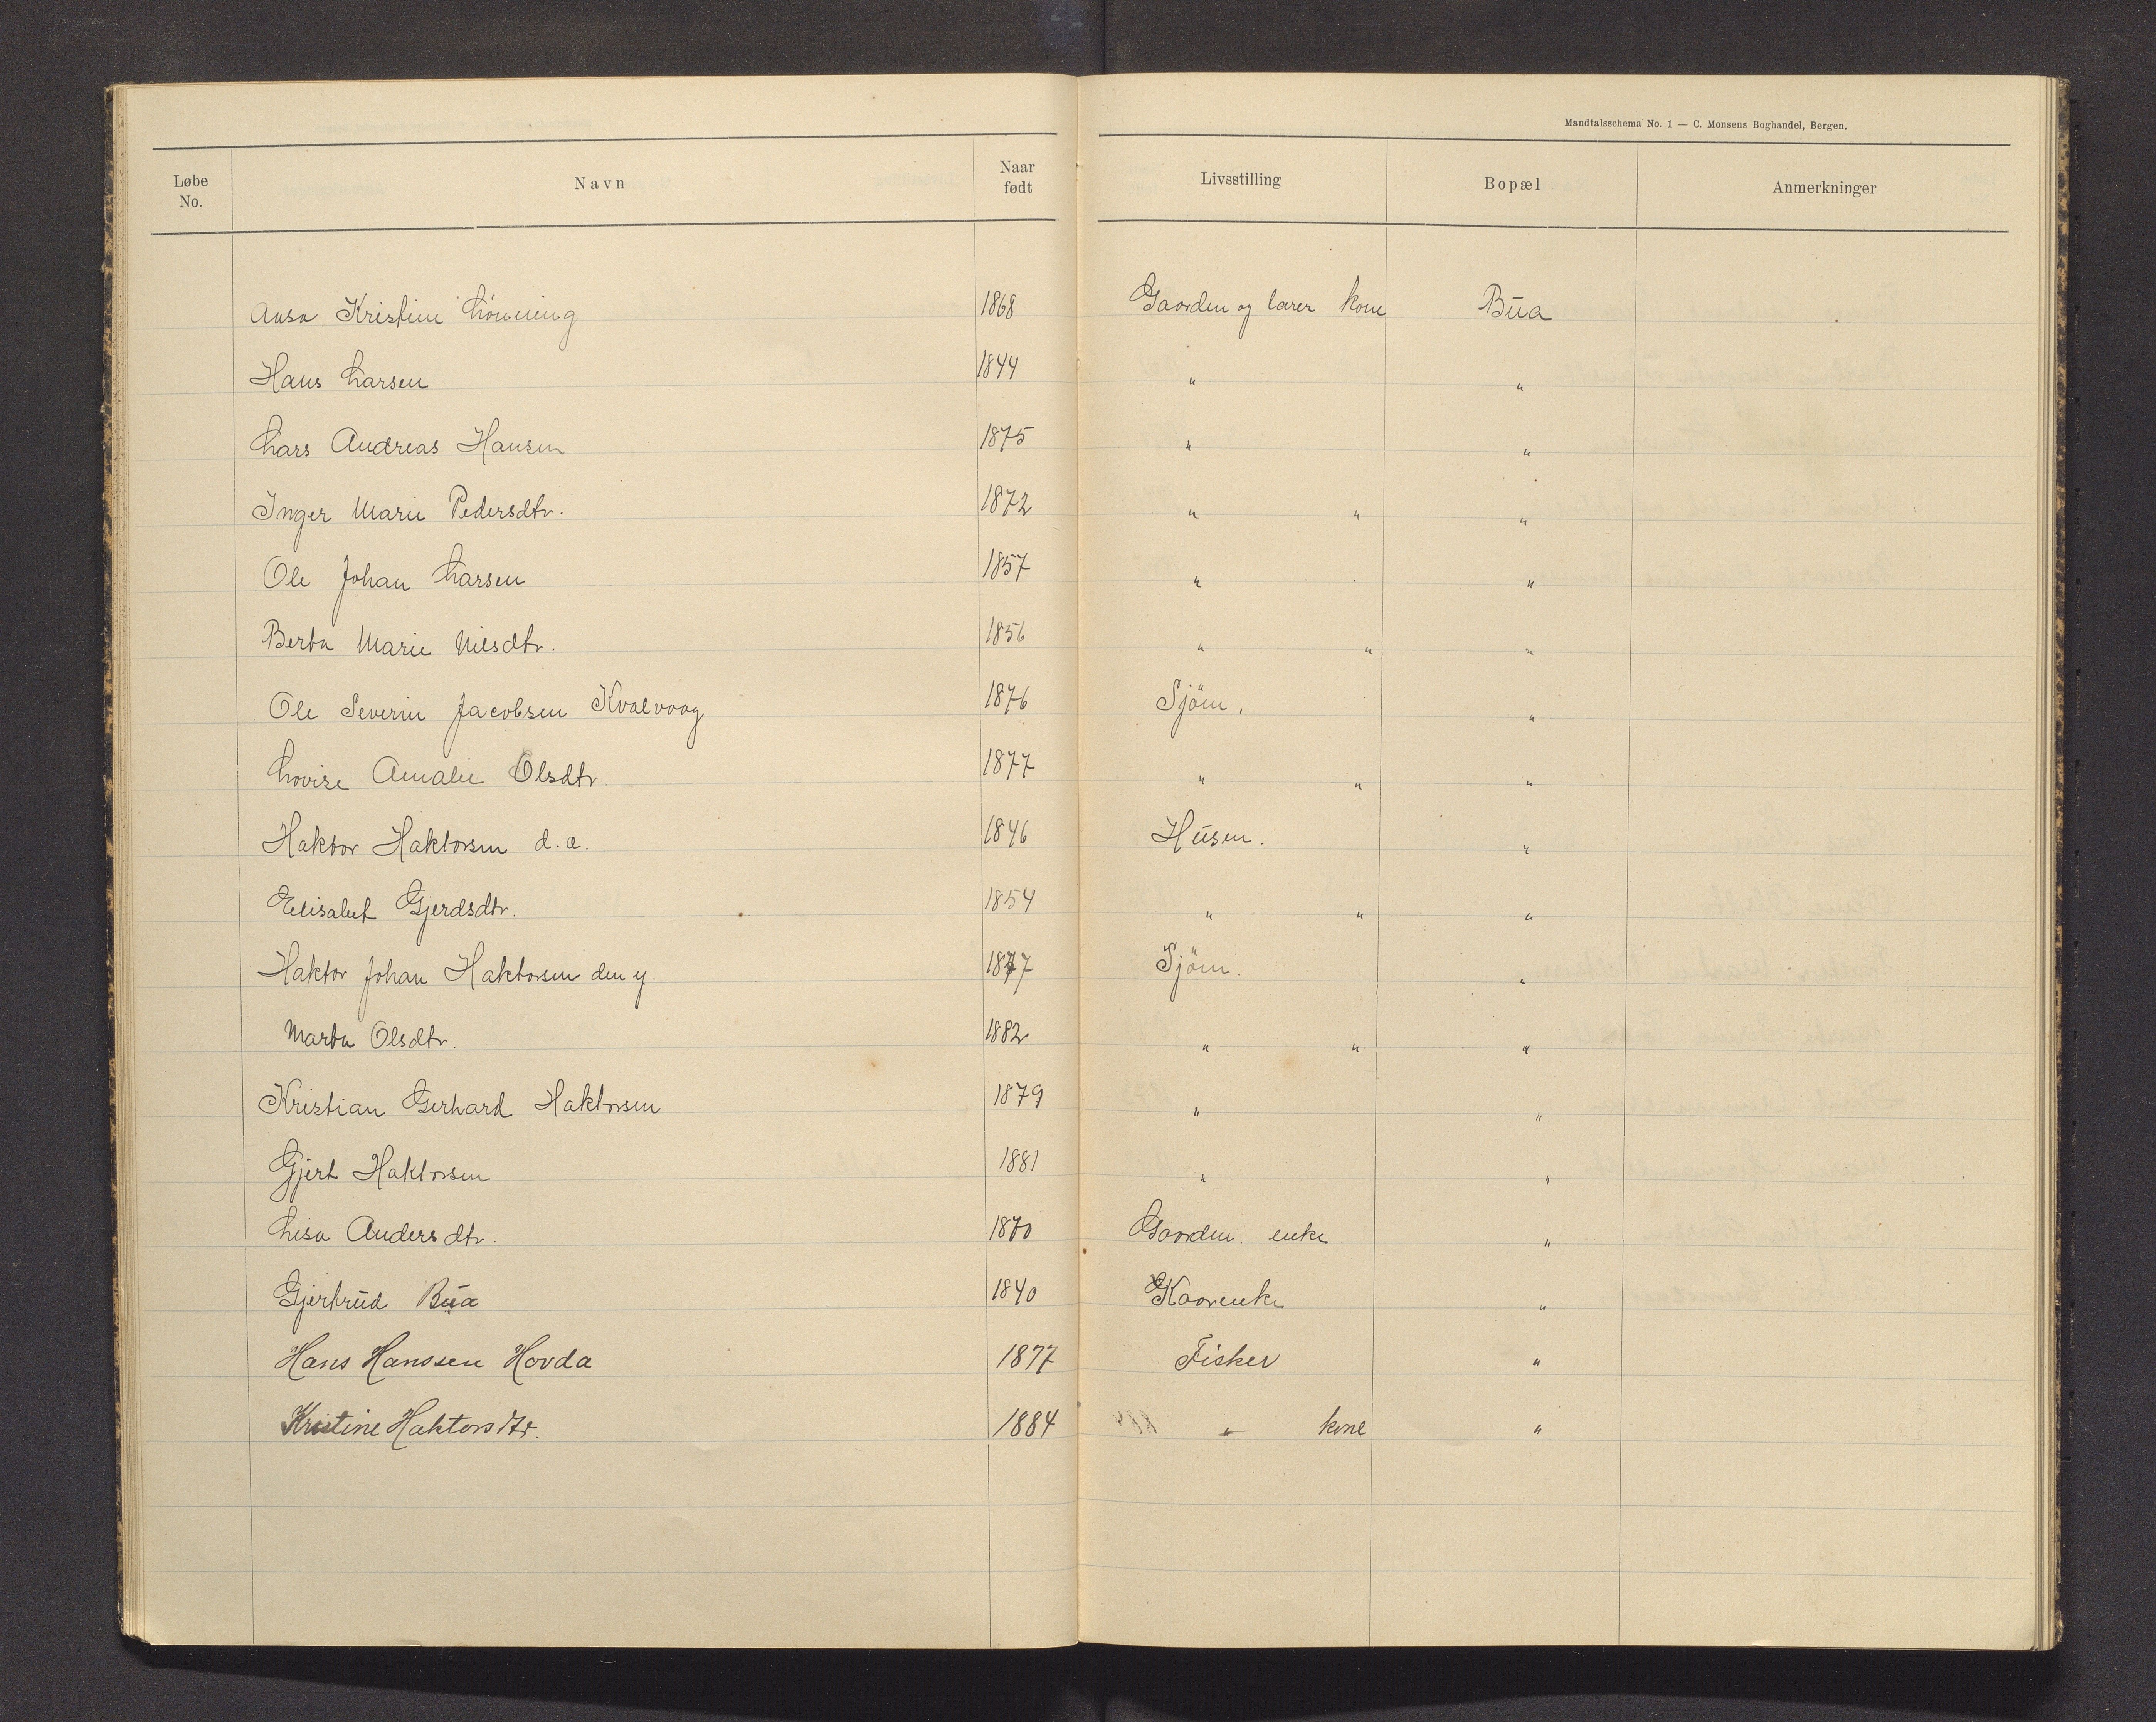 Mandtalsschema No. 1 — C. Monsens Boghandel, Bergen.
Løbe No. Navn Naar født Livsstilling Bopæl Anmerkninger
Aasa Kristine Lönning 1868 Gaardm og lærer kone Bua
Hans Larsen 1844 " "
Lars Andreas Hansen 1875 " "
Inger Marie Pedersdtr. 1872 " " "
Ole Johan Larsen 1857 " "
Berta Marie Nilsdtr. 1856 " " "
Ole Severin Jacobsen Kvalvaag 1876 Sjöm. "
Lovise Amalie Olsdtr. 1877 " " "
Haktor Haktorsen d.æ. 1846 Husm. "
Elisabet Gjerdsdtr. 1854 " " "
Haktor Johan Haktorsen den y. 1877 Sjöm. "
Marta Olsdtr. 1882 " " "
Kristian Gerhard Haktorsen 1879 " "
Gjert Haktorsen 1881 " "
Lisa Andersdtr. 1870 Gaardm. enke "
Gjertrud Bua 1840 Kaarenke "
Hans Hanssen Hovda 1877 Fisker "
Kristine Haktorsdtr. 1884 " kone "